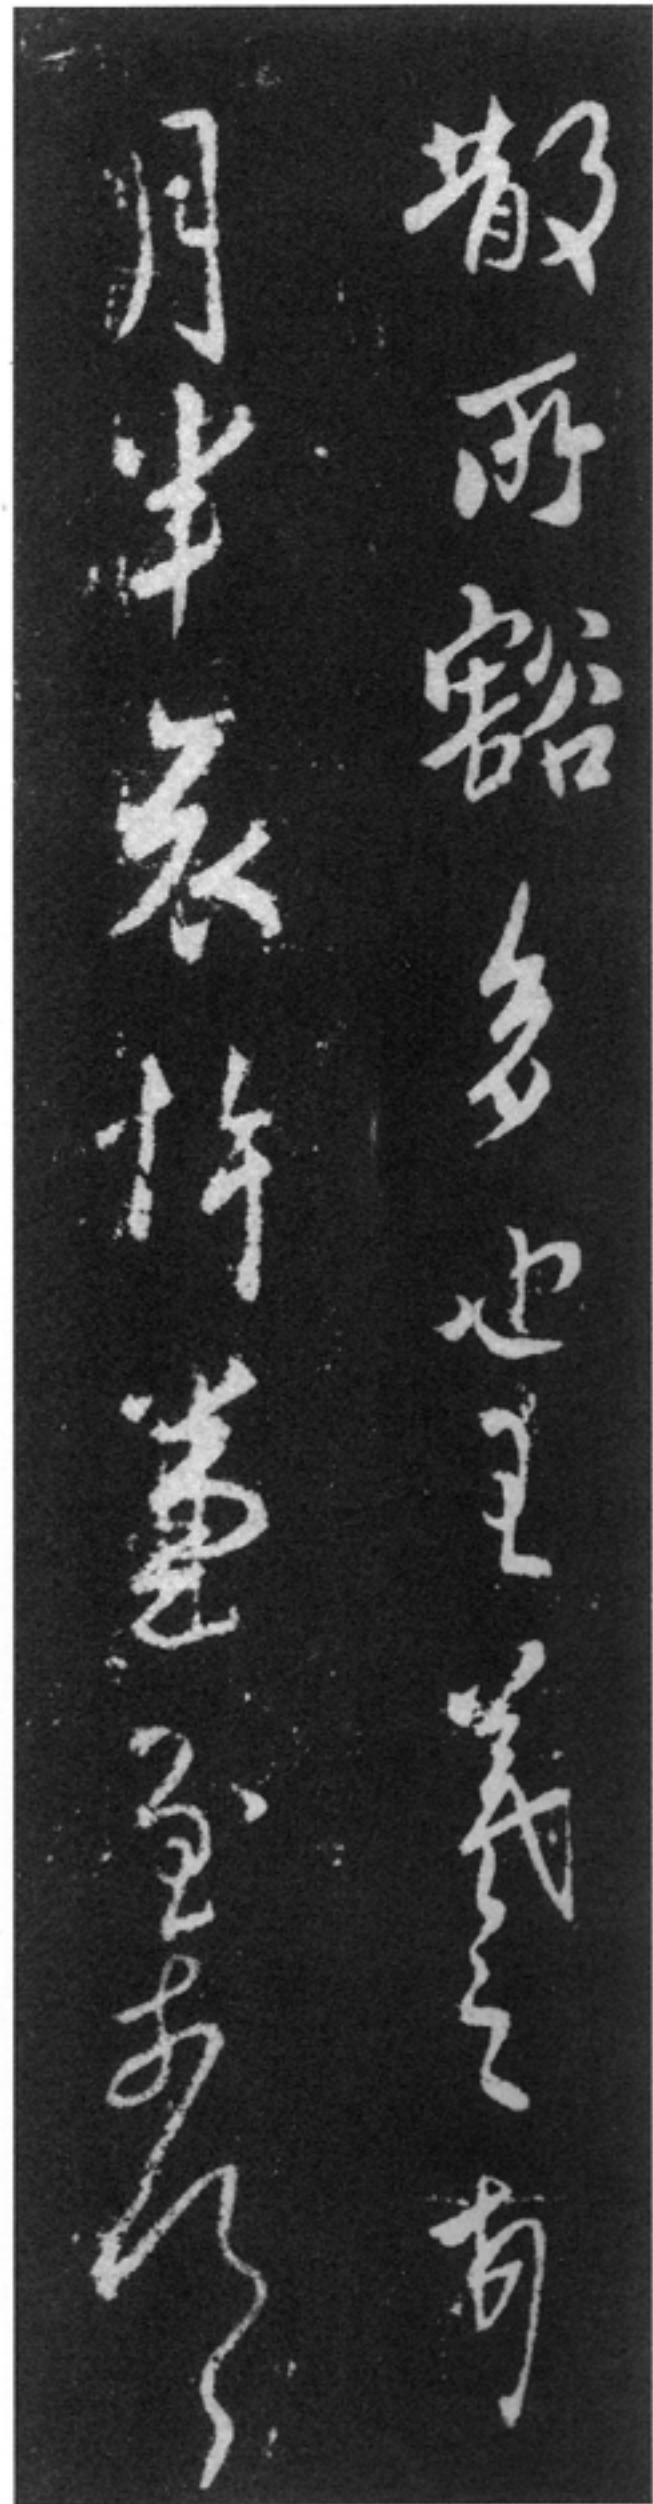 散所豁多也王羲之頓
月半哀悼兼至奈何